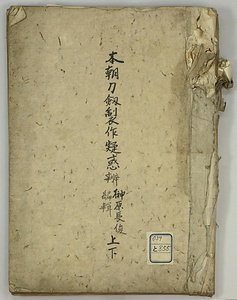 本朝刀劔製作疑惑辨
榊原長俊
編輯
上下